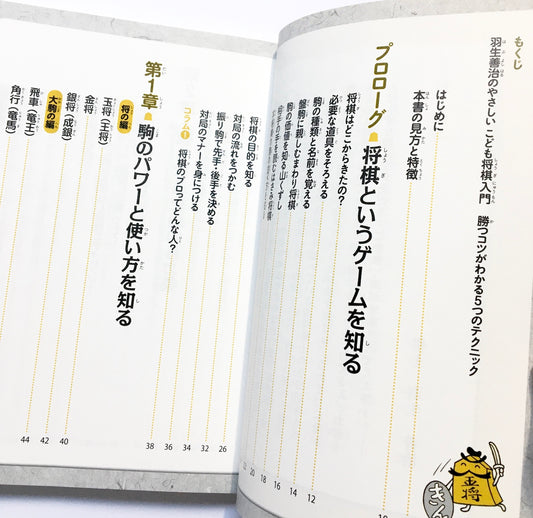 もくじ
羽生善治のやさしいこども将棋入門 勝つコツがわかる5つのテクニック
はじめに
本書の見方と特徴 10
プロローグ 将棋というゲームを知る
将棋はどこからきたの? 12
必要な道具をそろえる 14
駒の種類と名前を覚える 16
盤駒に親しむまわり将棋 18
駒の価値を知る山くずし 20
将棋の目的を知る 26
対局の流れをつかむ 32
振り駒で先手・後手を決める 34
対局のマナーを身につける 36
コラム1 将棋のプロってどんな人? 38
第1章 駒のパワーと使い方を知る
将の編
玉将(王将) 40
金将 42
銀将(成銀) 44
大駒の編
飛車(竜王)
角行(竜馬)
金将